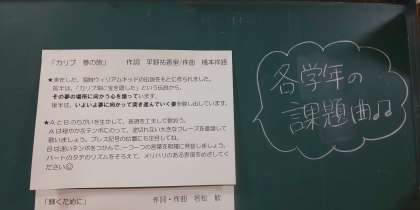 「カリブ　夢の旅」　作詞　平野祐香里/作曲　橋本祥路
★実在した、海賊ウィリアムキッドの伝説をもとに作られました。
前半は、「カリブ海に宝を隠した」という伝説から、
その夢の場所に向かう心を謳っています。
後半は、いよいよ夢に向かって突き進んでいく姿を映し出しています。
★AとBのちがいを生かして、表現を工夫して歌おう。
Aは穏やかなテンポにのって、途切れない大きなフレーズを意識して
歌いましょう。ブレス記号の位置にも注目してね。
Bは速いテンポをつかんで、一つ一つの言葉を明確に発音しましょう。
パートのタテのリズムをそろえて、メリハリのある表現をめざしてく
ださい☺
「輝くために」　作詞・作曲　若松　歓
各学年の
課題曲♫